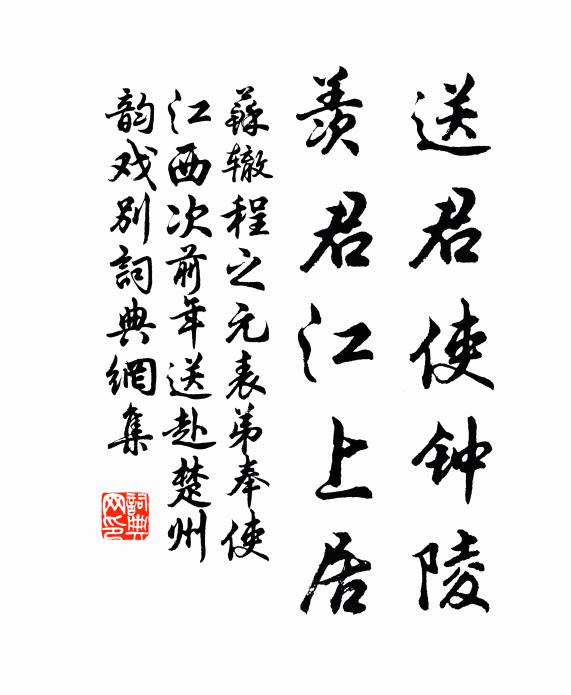 送君使钟陵
羡君江上居
蘇辙程之元表弟奉使
江西次前年送赴楚州
韵戏别詞典網集
詞典
网印